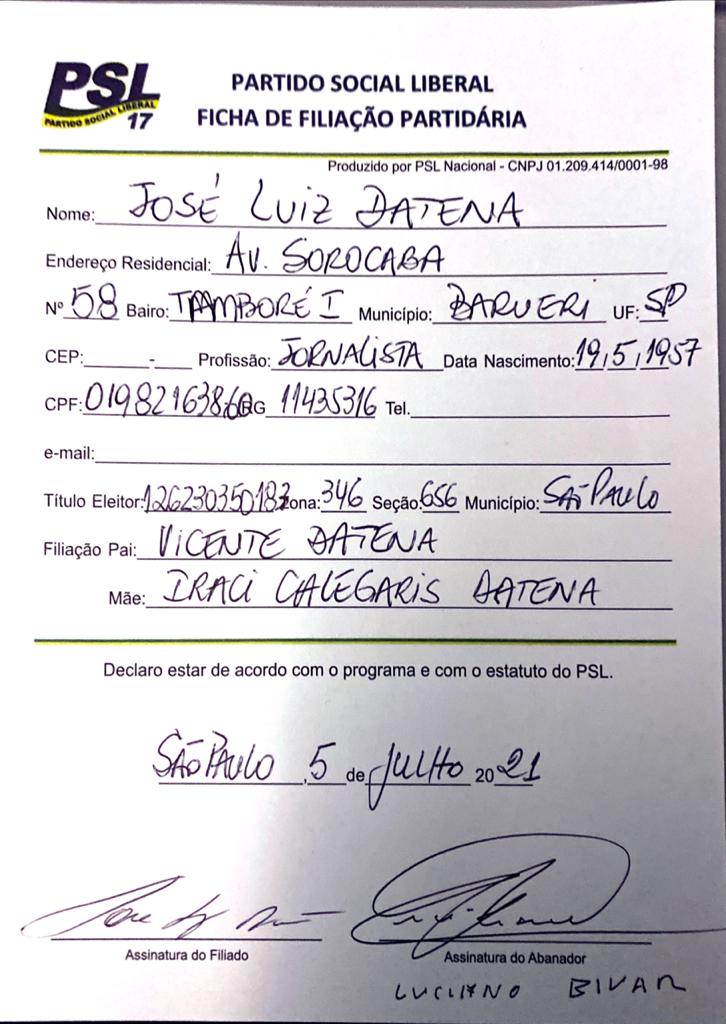 PSL
PARTIDO SOCIAL LIBERAL
17
PARTIDO SOCIAL LIBERAL
FICHA DE FILIAÇÃO PARTIDÁRIA
Produzido por PSL Nacional - CNPJ 01.209.414/0001-98
Nome: JOSÉ LUIZ DATENA
Endereço Residencial: AV. SOROCABA
Nº 58 Bairo: TAMBORÉ I Município: BARUERI UF: SP
CEP: - Profissão: JORNALISTA Data Nascimento: 19,5,1957
CPF: RG 11435316 Tel.
e-mail:
Título Eleitor: Zona: 346 Seção: 656 Município: SÃO PAULO
Filiação Pai: VICENTE DATENA
Mãe: IRACI CALEGARIS DATENA
Declaro estar de acordo com o programa e com o estatuto do PSL.
SÃO PAULO, 5 de JULHO 2021
Assinatura do Filiado Assinatura do Abanador
LUCIANO BIVAR